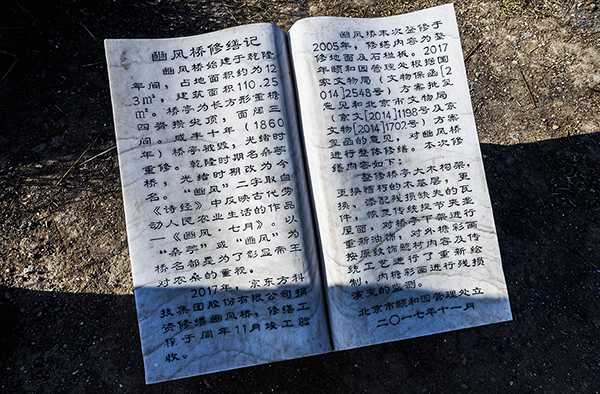 豳风桥修缮记
豳风桥始建于乾隆
年间，占地面积约为12
3㎡，建筑面积110.25
㎡。桥亭为长方形重檐
四脊攒尖顶，面阔三
间。咸丰十年（1860
年）桥亭被毁，光绪时
重修。乾隆时期名桑苧
桥，光绪时期改为今
名。“豳风”二字取自
《诗经》中反映古代劳
动人民农业生活的作品
—《豳风·七月》。以
“桑苧”或“豳风”为
桥名都是为了彰显帝王
对农桑的重视。
2017年，京东方科
技集团股份有限公司捐
资修缮豳风桥，修缮工
程于同年11月竣工验
收。
豳风桥末次整修于
2005年，修缮内容为整
修地面及石栏板。2017
年颐和园管理处根据国
家文物局（文物保函[2
014]2548号）方案批复
意见和北京市文物局
（京文[2014]1198号及京
文物[2014]1702号）方案
复函的意见，对豳风桥
进行整体修缮。本次修
缮内容如下：
整修桥亭大木构架，
更换糟朽的木基层，更
换、添配残损缺失的瓦
件，恢复传统捉节夹垄
屋面，对桥亭下架进行
重新油饰，对外檐彩画
按原纹饰题材内容及传
统工艺进行了重新绘
制，内檐彩画进行残损
演变的监测。
北京市颐和园管理处立
二〇一七年十一月